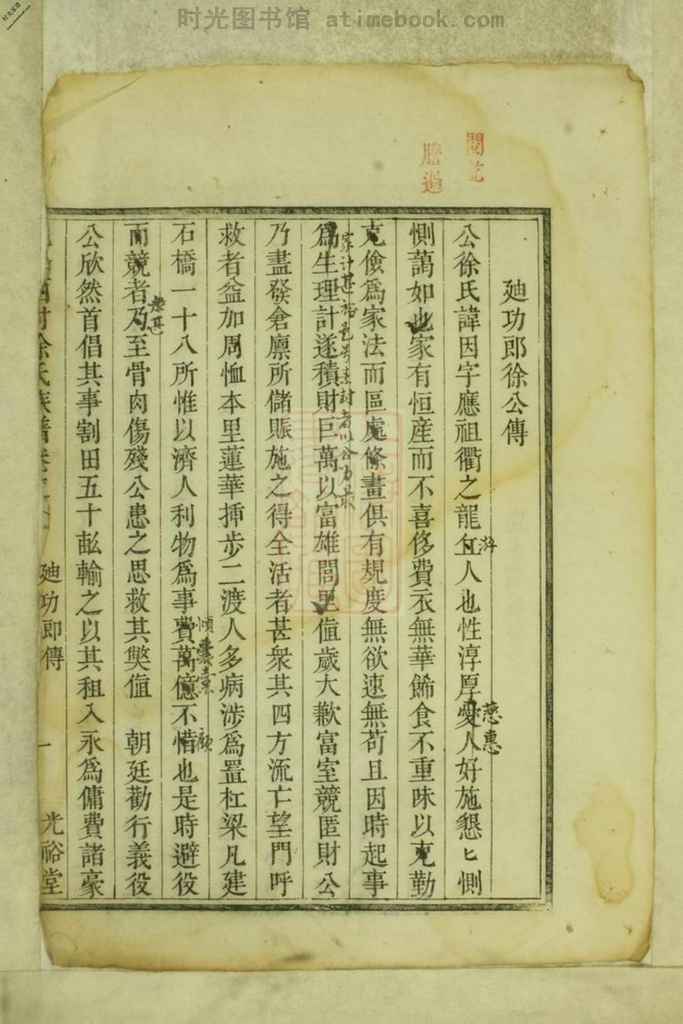 时光图书馆 atimebook.com
閱訖
謄過
廸功郎徐公傳
公徐氏諱因字應祖衢之龍企人也性淳厚愛人好施懇匕惻
游
慈惠
惻藹如也家有恒産而不喜侈費衣無華飾食不重味以克勤
克儉爲家法而區處條畫俱有規度無欲速無苟且因時起事
爲生理計遂積財巨萬以富雄閭里値歲大歉富室競匿財公
乃盡發倉廪所儲賑施之得全活者甚衆其四方流亡望門呼
救者益加周恤本里蓮華挿步二渡人多病涉爲置杠梁凡建
石橋一十八所惟以濟人利物爲事費萬億不惜也是時避役
傾囊橐
顧
而競者乃至骨肉傷殘公患之思救其獘値 朝廷勸行義役
公欣然首倡其事割田五十畝輸之以其租入永爲傭費諸豪
村徐氏族譜卷之
廸功郎傳
一
光裕堂